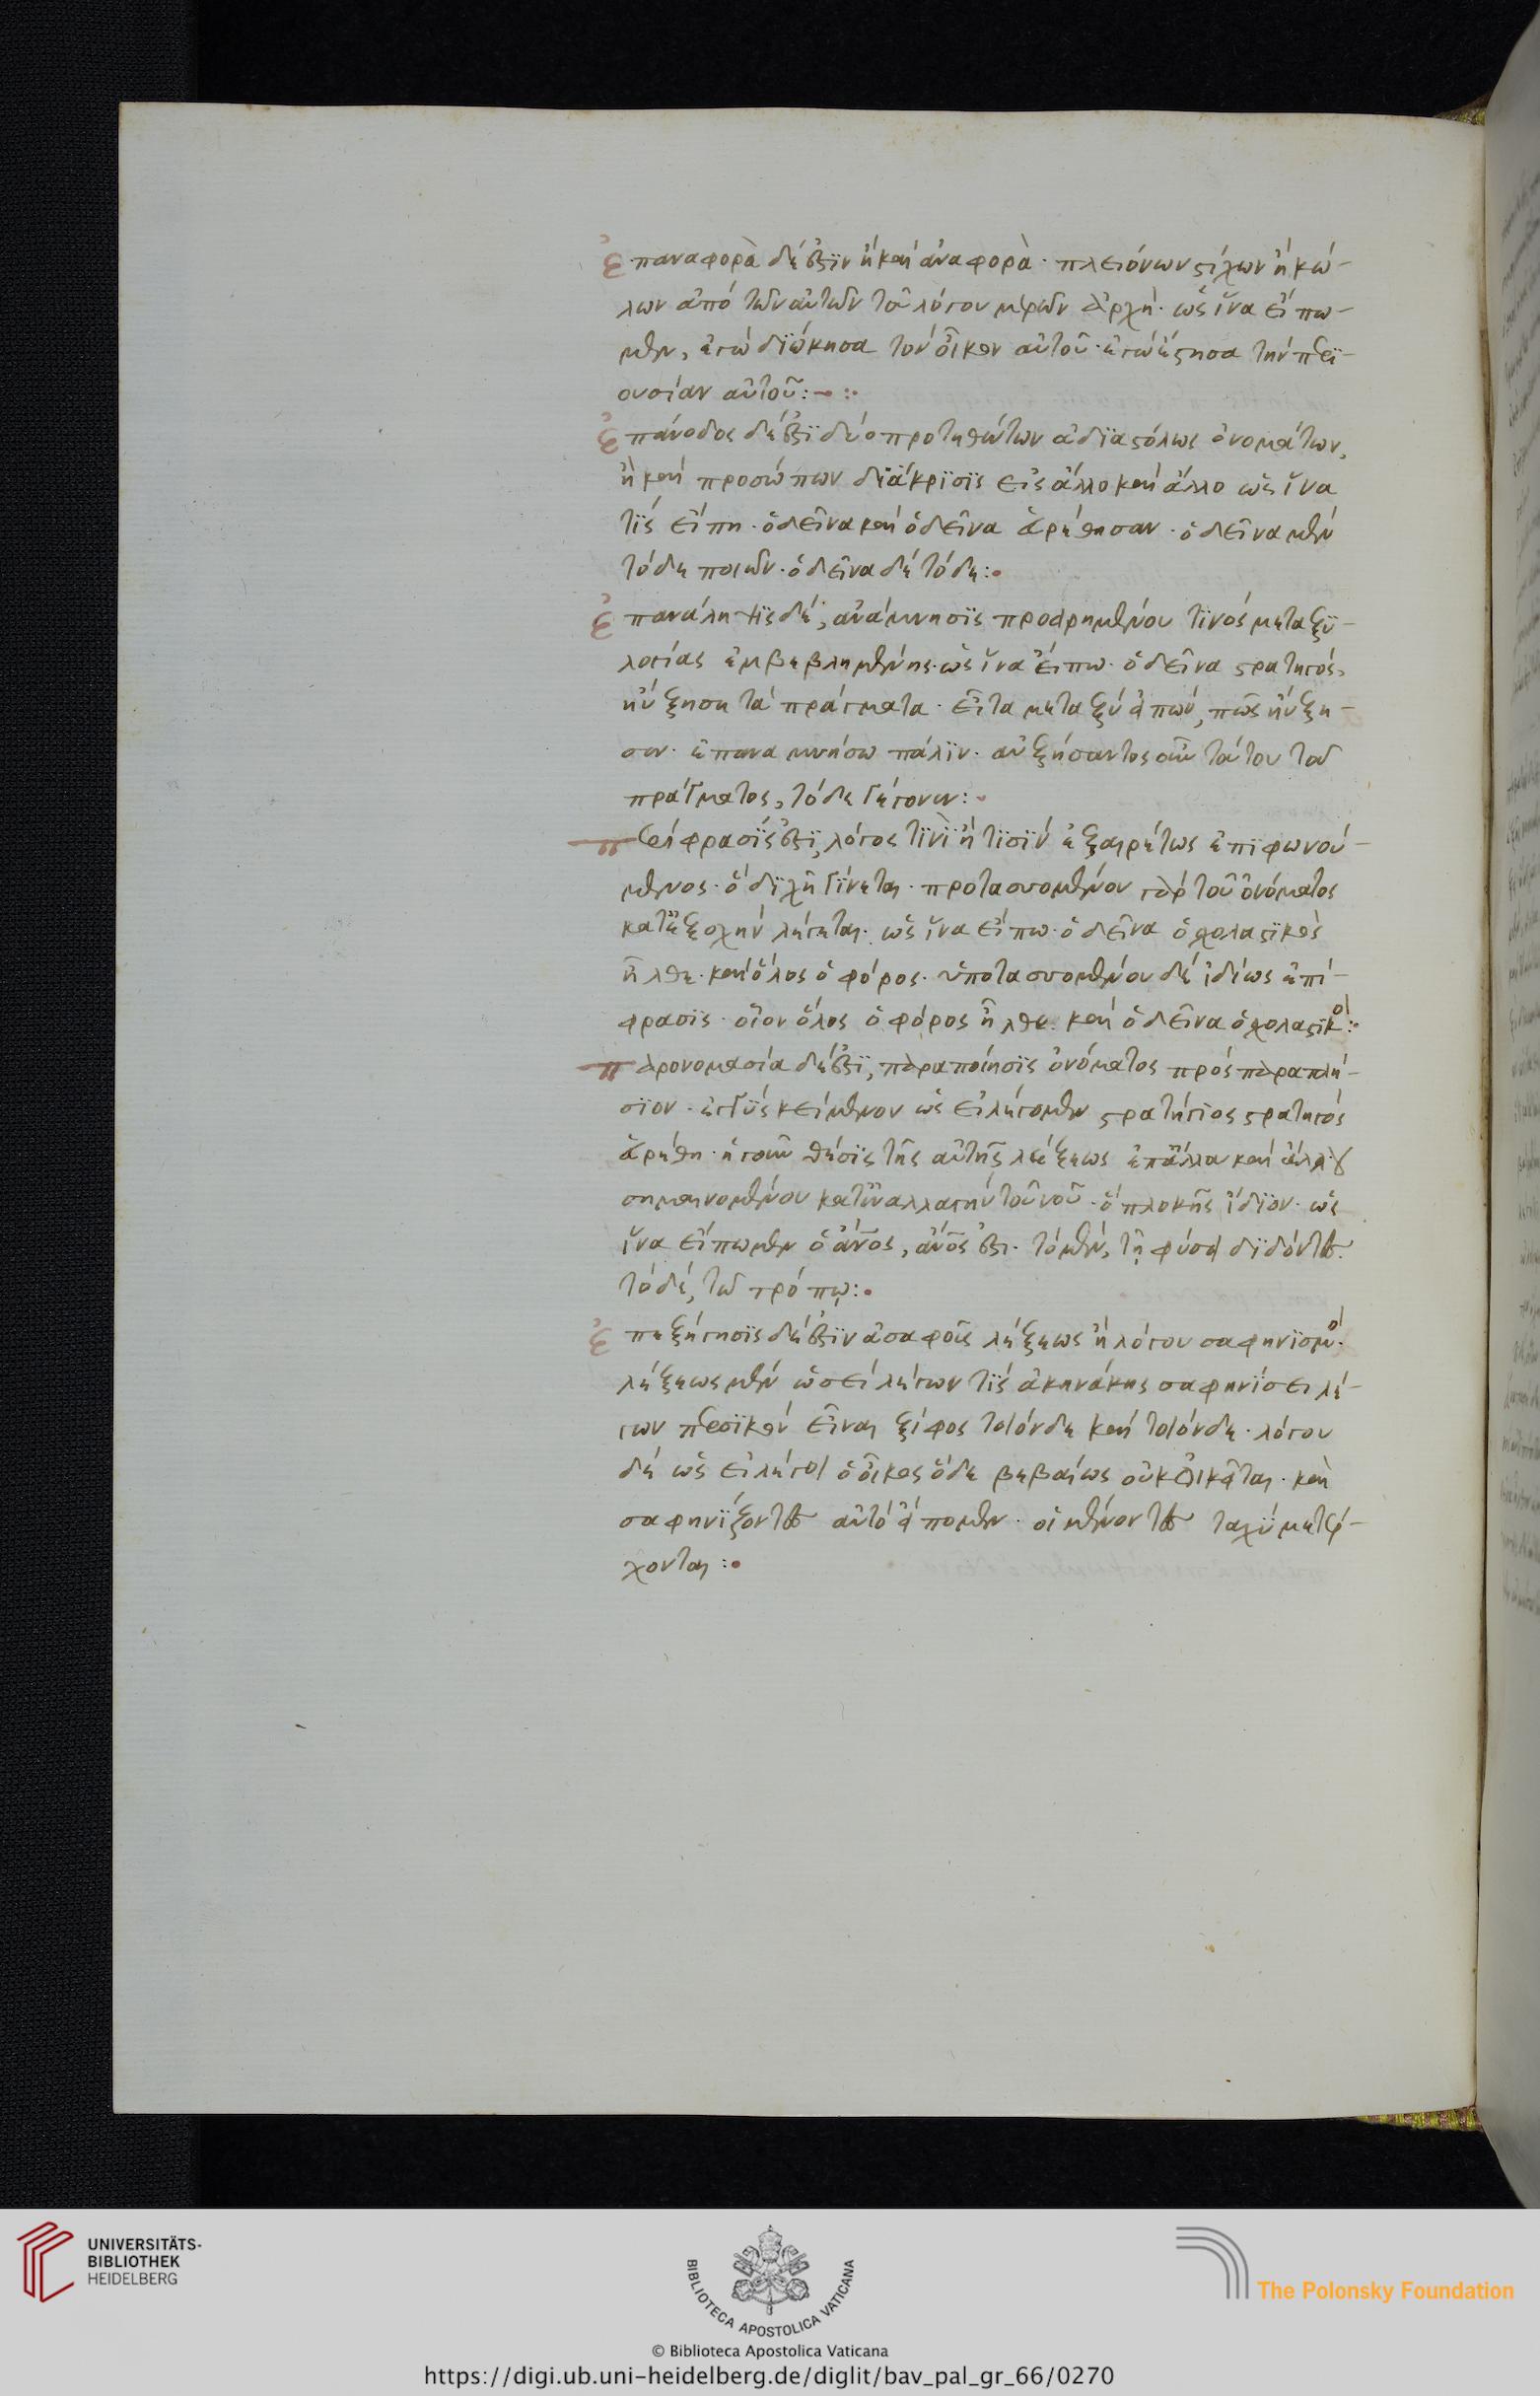 Ἐπαναφορὰ δέ ἐστιν ἢ καὶ ἀναφορὰ· πλειόνων στίχων ἢ κώ-
λων ἀπὸ τῶν αὐτῶν τοῦ λόγου μερῶν ἀρχή· ὡς ἵνα εἴπω-
μεν, ἐγὼ διῴκησα τὸν οἶκον αὐτοῦ· ἐγὼ ἔστησα τὴν περι-
ουσίαν αὐτοῦ:
Ἐπάνοδος δέ ἐστι δύο προτεθέντων ἀδιαστόλως ὀνομάτων,
ἢ καὶ προσώπων διάκρισις εἰς ἄλλο καὶ ἄλλο ὡς ἵνα
τὶς εἴπη· ὁ δεῖνα καὶ ὁ δεῖνα εὑρέθησαν· ὁ δεῖνα μὲν
τόδε ποιῶν· ὁ δεῖνα δὲ τόδε:
Ἐπανάληψις δέ, ἀνάμνησις προειρημένου τινὸς μεταξυ-
λογίας ἐμβεβλημένης· ὡς ἵνα εἴπω· ὁ δεῖνα στρατηγός,
ηὔξησε τὰ πράγματα· εἶτα μεταξὺ εἰπὼν, πῶς ηὔξη-
σεν· ἐπαναμνήσω πάλιν· αὐξήσαντος οὖν τούτου τοῦ
πράγματος, τόδε γέγονεν:
Περίφρασις ἐστὶ, λόγος τινὶ ἢ τισὶν ἐξαιρέτως ἐπιφωνού-
μενος· ὃ διχῆ γίνεται· προτασσομένου γὰρ τοῦ ὀνόματος
κατ' ἐξοχὴν λέγεται· ὡς ἵνα εἴπω· ὁ δεῖνα ὁ σχολαστικὸς
ἦλθε· καὶ ὅλος ὁ φόρος· ὑποτασσομένου δὲ ἰδίως ἐπί-
φρασις· οἷον ὅλος ὁ φόρος ἦλθε· καὶ ὁ δεῖνα ὁ σχολαστικός:
Παρονομασία δέ ἐστι, παραποίησις ὀνόματος πρὸς παραπλή-
σιον· ἐγγὺς κείμενον ὡς εἰ λέγομεν στρατήγιος στρατηγὸς
εὑρέθη· ἡ γοῦν θέσις τῆς αὐτῆς λέξεως ἐπ' ἄλλα καὶ ἄλλου
σημαινομένου κατ' ἐναλλαγὴν τοῦ νοῦ· ὃ πλοκῆς ἴδιον· ὡς
ἵνα εἴπωμεν ὁ ἄνος, ἄνος ἐστι· τὸ μὲν, τῇ φύσει διδόντες·
τὸ δὲ, τῶ τρόπῳ:
Ἐπεξήγησις δέ ἐστιν ἀσαφοῦς λέξεως ἢ λόγου σαφηνισμός·
λέξεως μὲν ὡς εἰ λέγων τὶς ἀκηνάκης σαφηνίσει λέ-
γων περσικὸν εἶναι ξίφος τοιόνδε καὶ τοιόνδε· λόγου
δὲ ὡς εἰ λέγοι ὁ οἶκος ὅδε βεβαίως οὐκ οἰκεῖται· καὶ
σαφηνίζοντες αὐτὸ εἴπομεν· οἱ μένοντες ταχὺ μετέρ-
χονται:
UNIVERSITÄTS-
BIBLIOTHEK
HEIDELBERG
BIBLIOTECA APOSTOLICA VATICANA
The Polonsky Foundation
© Biblioteca Apostolica Vaticana
https://digi.ub.uni-heidelberg.de/diglit/bav_pal_gr_66/0270